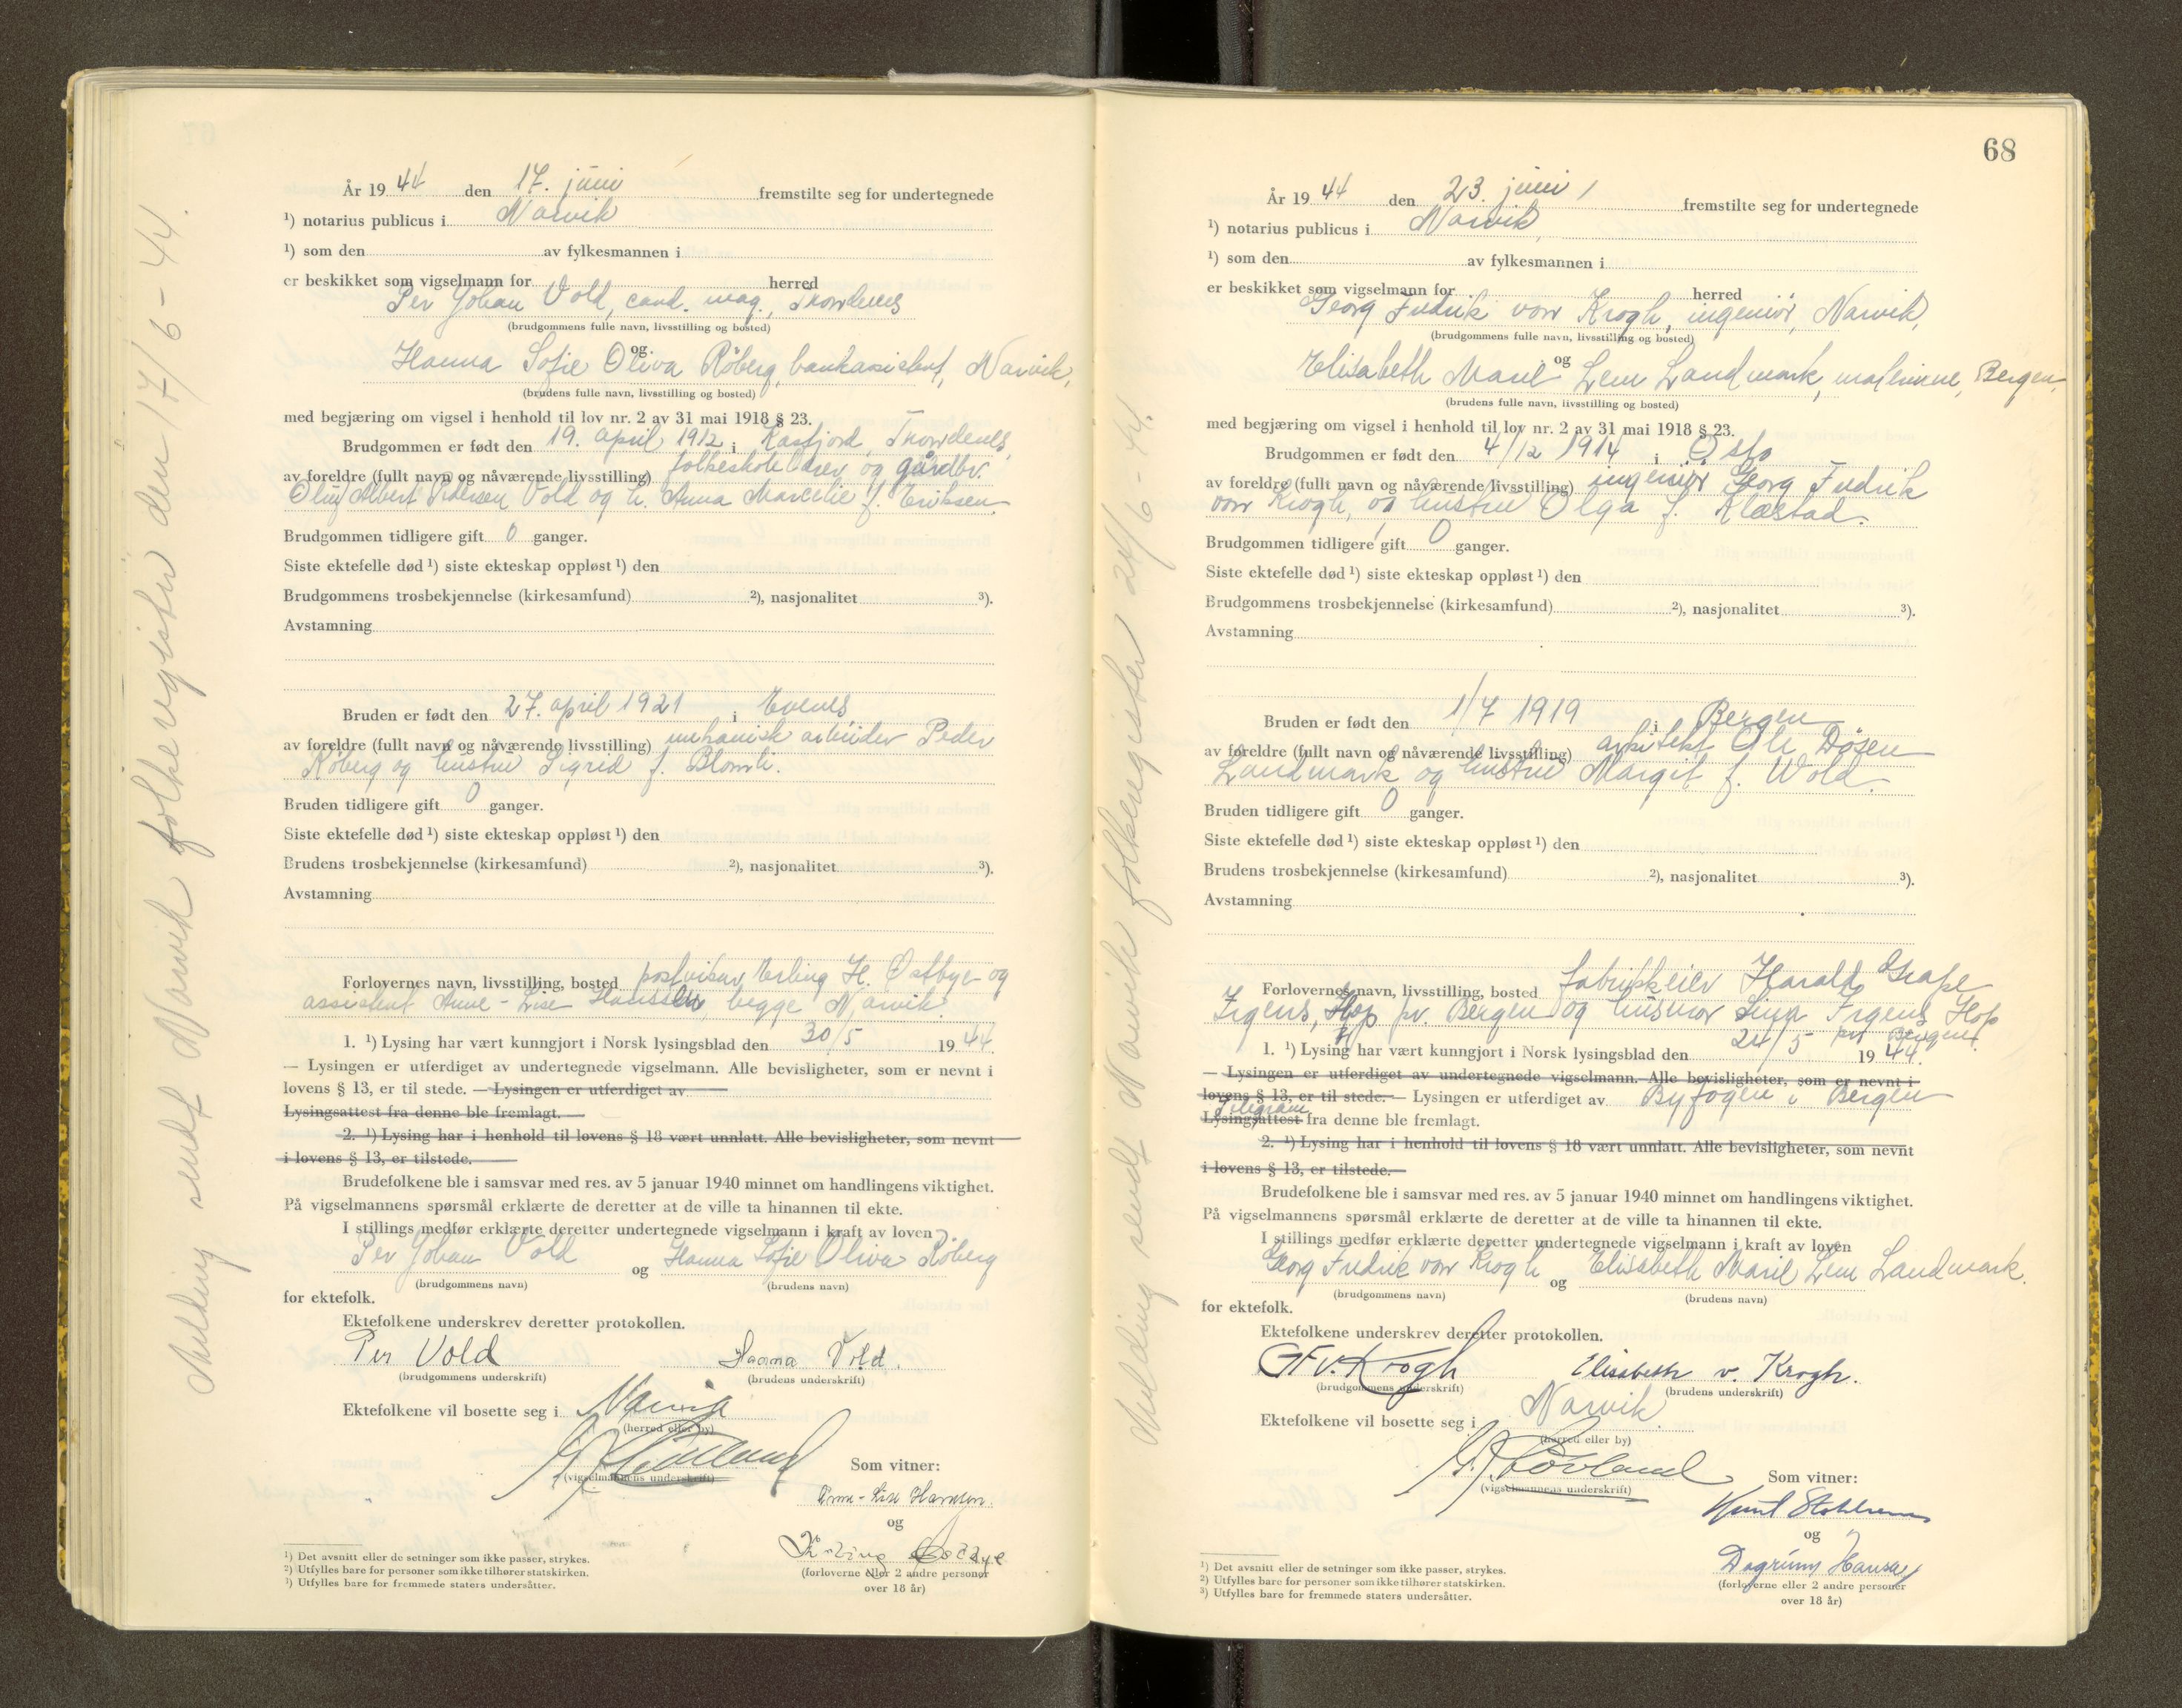 Melding sendt Narvik folkeregister den 17/6 - 44.
År 1944 den 17. juni fremstilte seg for undertegnede
¹) notarius publicus i Narvik
¹) som den av fylkesmannen i
er beskikket som vigselmann for herred
Per Johan Vold, cand. mag., Trondenes
(brudgommens fulle navn, livsstilling og bosted)
og
Hanna Sofie Oliva Røberg, bankassistent, Narvik,
(brudens fulle navn, livsstilling og bosted)
med begjæring om vigsel i henhold til lov nr. 2 av 31 mai 1918 § 23.
Brudgommen er født den 19. april 1912 i Kasfjord, Trondenes,
av foreldre (fullt navn og nåværende livsstilling) folkeskolelærer og gårdbr.
Oluf Albert Pedersen Vold og h. Anna Marcelie f. Eriksen.
Brudgommen tidligere gift 0 ganger.
Siste ektefelle død ¹) siste ekteskap oppløst ¹) den
Brudgommens trosbekjennelse (kirkesamfund) ²), nasjonalitet ³).
Avstamning
Bruden er født den 27. april 1921 i Evenes
av foreldre (fullt navn og nåværende livsstilling) mekanisk arbeider Peder
Røberg og hustru Sigrid f. Blomli.
Bruden tidligere gift 0 ganger.
Siste ektefelle død ¹) siste ekteskap oppløst ¹) den
Brudens trosbekjennelse (kirkesamfund) ²), nasjonalitet ³).
Avstamning
Forlovernes navn, livsstilling, bosted Erling H. Østbye og
assistent Anne-Lise Hanssen, begge Narvik.
1. ¹) Lysing har vært kunngjort i Norsk lysingsblad den 30/5 1944.
— Lysingen er utferdiget av undertegnede vigselmann. Alle bevisligheter, som er nevnt i
lovens § 13, er til stede. — Lysingen er utferdiget av
Lysingsattest fra denne ble fremlagt. —
2. ¹) Lysing har i henhold til lovens § 18 vært unnlatt. Alle bevisligheter, som nevnt
i lovens § 13, er tilstede.
Brudefolkene ble i samsvar med res. av 5 januar 1940 minnet om handlingens viktighet.
På vigselmannens spørsmål erklærte de deretter at de ville ta hinannen til ekte.
I stillings medfør erklærte deretter undertegnede vigselmann i kraft av loven
Per Johan Vold og Hanna Sofie Oliva Røberg
(brudgommens navn) (brudens navn)
for ektefolk.
Ektefolkene underskrev deretter protokollen.
Per Vold Hanna Vold.
(brudgommens underskrift) (brudens underskrift)
Ektefolkene vil bosette seg i Narvik
(herred eller by)
(vigselmannens underskrift)
Som vitner:
Anne-Lise Hanssen.
og
Erling Østbye
(forloverne eller 2 andre personer
over 18 år)
¹) Det avsnitt eller de setninger som ikke passer, strykes.
²) Utfylles bare for personer som ikke tilhører statskirken.
³) Utfylles bare for fremmede staters undersåtter.
68
Melding sendt Narvik folkeregister 24/6 - 44.
År 1944 den 23. juni, fremstilte seg for undertegnede
¹) notarius publicus i Narvik,
¹) som den av fylkesmannen i
er beskikket som vigselmann for herred
Georg Fredrik von Krogh, ingeniør, Narvik,
(brudgommens fulle navn, livsstilling og bosted)
og
Elisabeth Maril Lem Landmark, malerinne, Bergen,
(brudens fulle navn, livsstilling og bosted)
med begjæring om vigsel i henhold til lov nr. 2 av 31 mai 1918 § 23.
Brudgommen er født den 4/12 1914 i Oslo
av foreldre (fullt navn og nåværende livsstilling) ingeniør Georg Fredrik
von Krogh, og hustru Olga f. Klæstad.
Brudgommen tidligere gift 0 ganger.
Siste ektefelle død ¹) siste ekteskap oppløst ¹) den
Brudgommens trosbekjennelse (kirkesamfund) ²), nasjonalitet ³).
Avstamning
Bruden er født den 1/7 1919 i Bergen
av foreldre (fullt navn og nåværende livsstilling) arkitekt Ole Døsen
Landmark og hustru Margit f. Wold.
Bruden tidligere gift 0 ganger.
Siste ektefelle død ¹) siste ekteskap oppløst ¹) den
Brudens trosbekjennelse (kirkesamfund) ²), nasjonalitet ³).
Avstamning
Forlovernes navn, livsstilling, bosted fabrikkeier Harald Grape
Irgens, Hop pr. Bergen og husmor Irgens Hop
pr. Bergen.
1. ¹) Lysing har vært kunngjort i Norsk lysingsblad den 24/5 1944.
— Lysingen er utferdiget av undertegnede vigselmann. Alle bevisligheter, som er nevnt i
lovens § 13, er til stede. — Lysingen er utferdiget av Byfogden i Bergen
Telegram
Lysingsattest fra denne ble fremlagt.
2. ¹) Lysing har i henhold til lovens § 18 vært unnlatt. Alle bevisligheter, som nevnt
i lovens § 13, er tilstede.
Brudefolkene ble i samsvar med res. av 5 januar 1940 minnet om handlingens viktighet.
På vigselmannens spørsmål erklærte de deretter at de ville ta hinannen til ekte.
I stillings medfør erklærte deretter undertegnede vigselmann i kraft av loven
Georg Fredrik von Krogh og Elisabeth Maril Lem Landmark.
(brudgommens navn) (brudens navn)
for ektefolk.
Ektefolkene underskrev deretter protokollen.
GFv.Krogh Elisabeth v. Krogh.
(brudgommens underskrift) (brudens underskrift)
Ektefolkene vil bosette seg i Narvik.
(herred eller by)
(vigselmannens underskrift)
Som vitner:
og
Dagrunn Hansen
(forloverne eller 2 andre personer
over 18 år)
¹) Det avsnitt eller de setninger som ikke passer, strykes.
²) Utfylles bare for personer som ikke tilhører statskirken.
³) Utfylles bare for fremmede staters undersåtter.